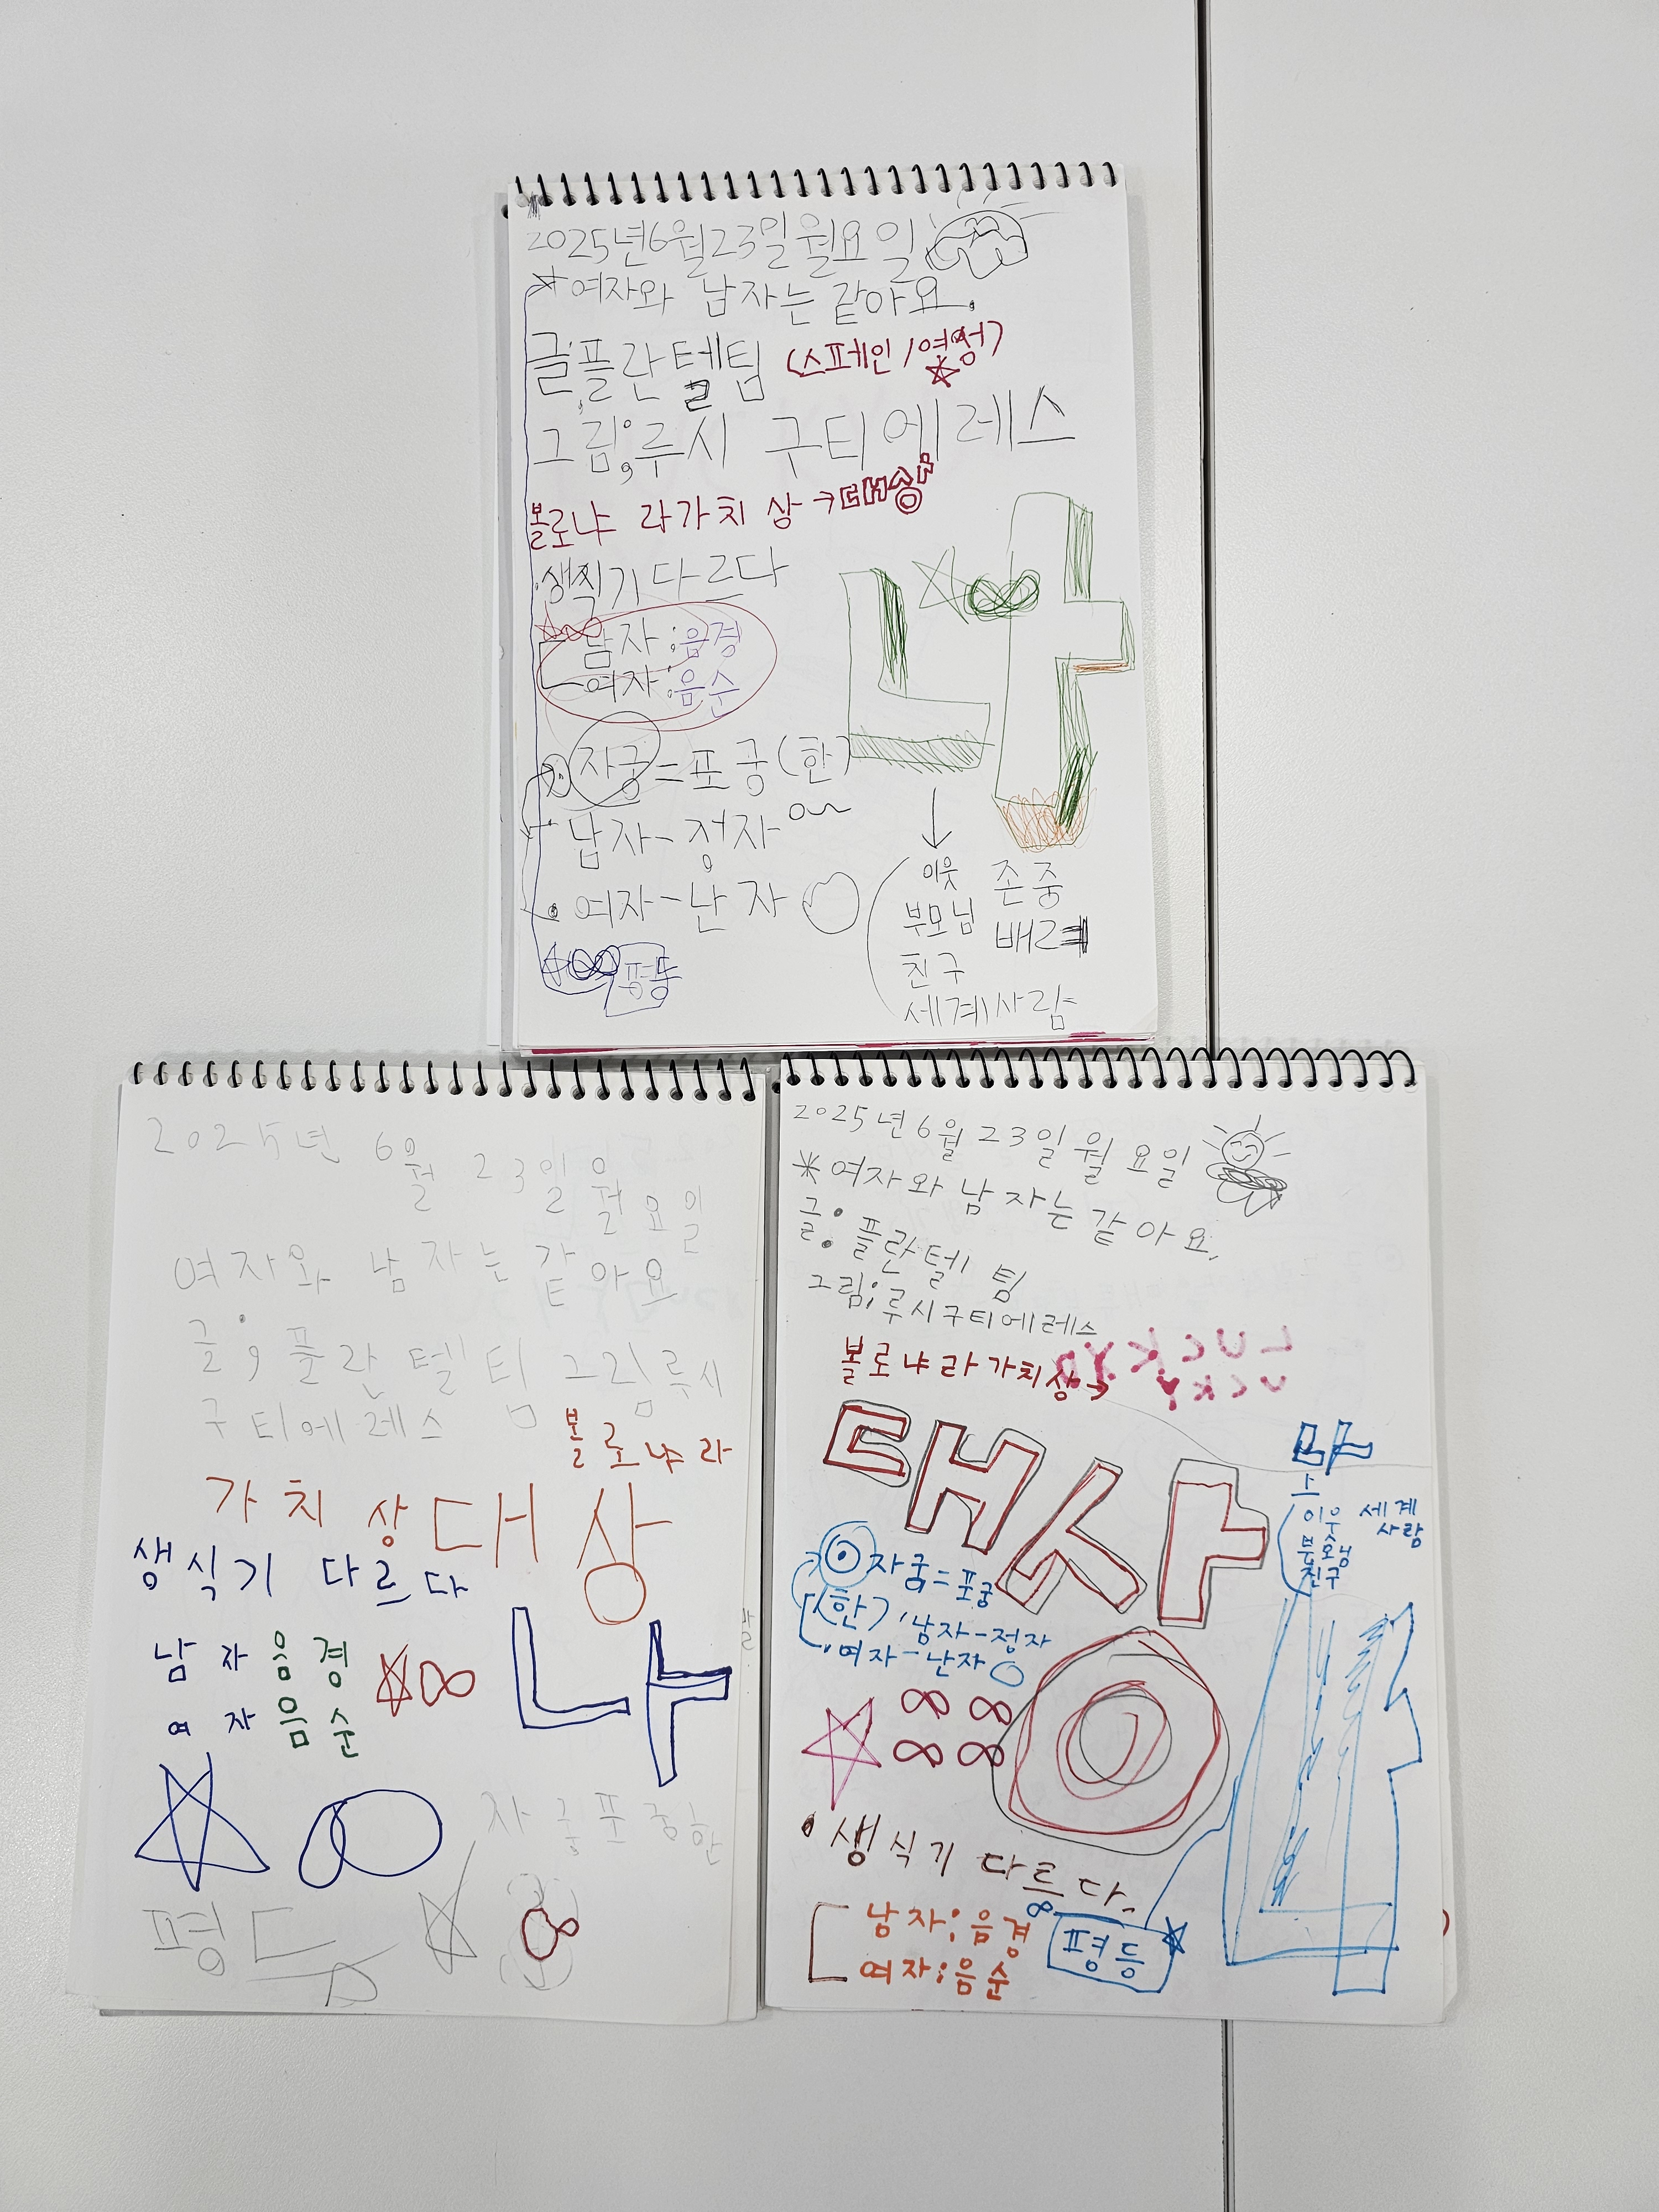 2025년6월23일월요일
*여자와 남자는 같아요.
글;플란텔팀 (스페인/
그림;루시 구티에레스
볼로냐 라가치 상→대상
생식기다르다
남자:음경
여자:음순
나
자궁=포궁(한)
남자-정자
·여자-난자
평등
이웃 존중
부모님 배려
친구
세계사람
2025년 6월 23일월요일
여자와 남자는 같아요
글;플란텔팀 그림루시
구티에레스 볼로냐라
가치상대상
생식기 다르다
남자음경
여자음순
나
자궁포궁한
평등
2025년6월23일월요일
*여자와남자는같아요.
글:플란텔 팀
그림;루시구티에레스
볼로냐라가치상→
LUCKY
UCKY
대상
나
이웃 세계
사람
친구
자궁=포궁
(한) 남자-정자
여자-난자
·생식기 다르다.
남자;음경
여자;음순
평등